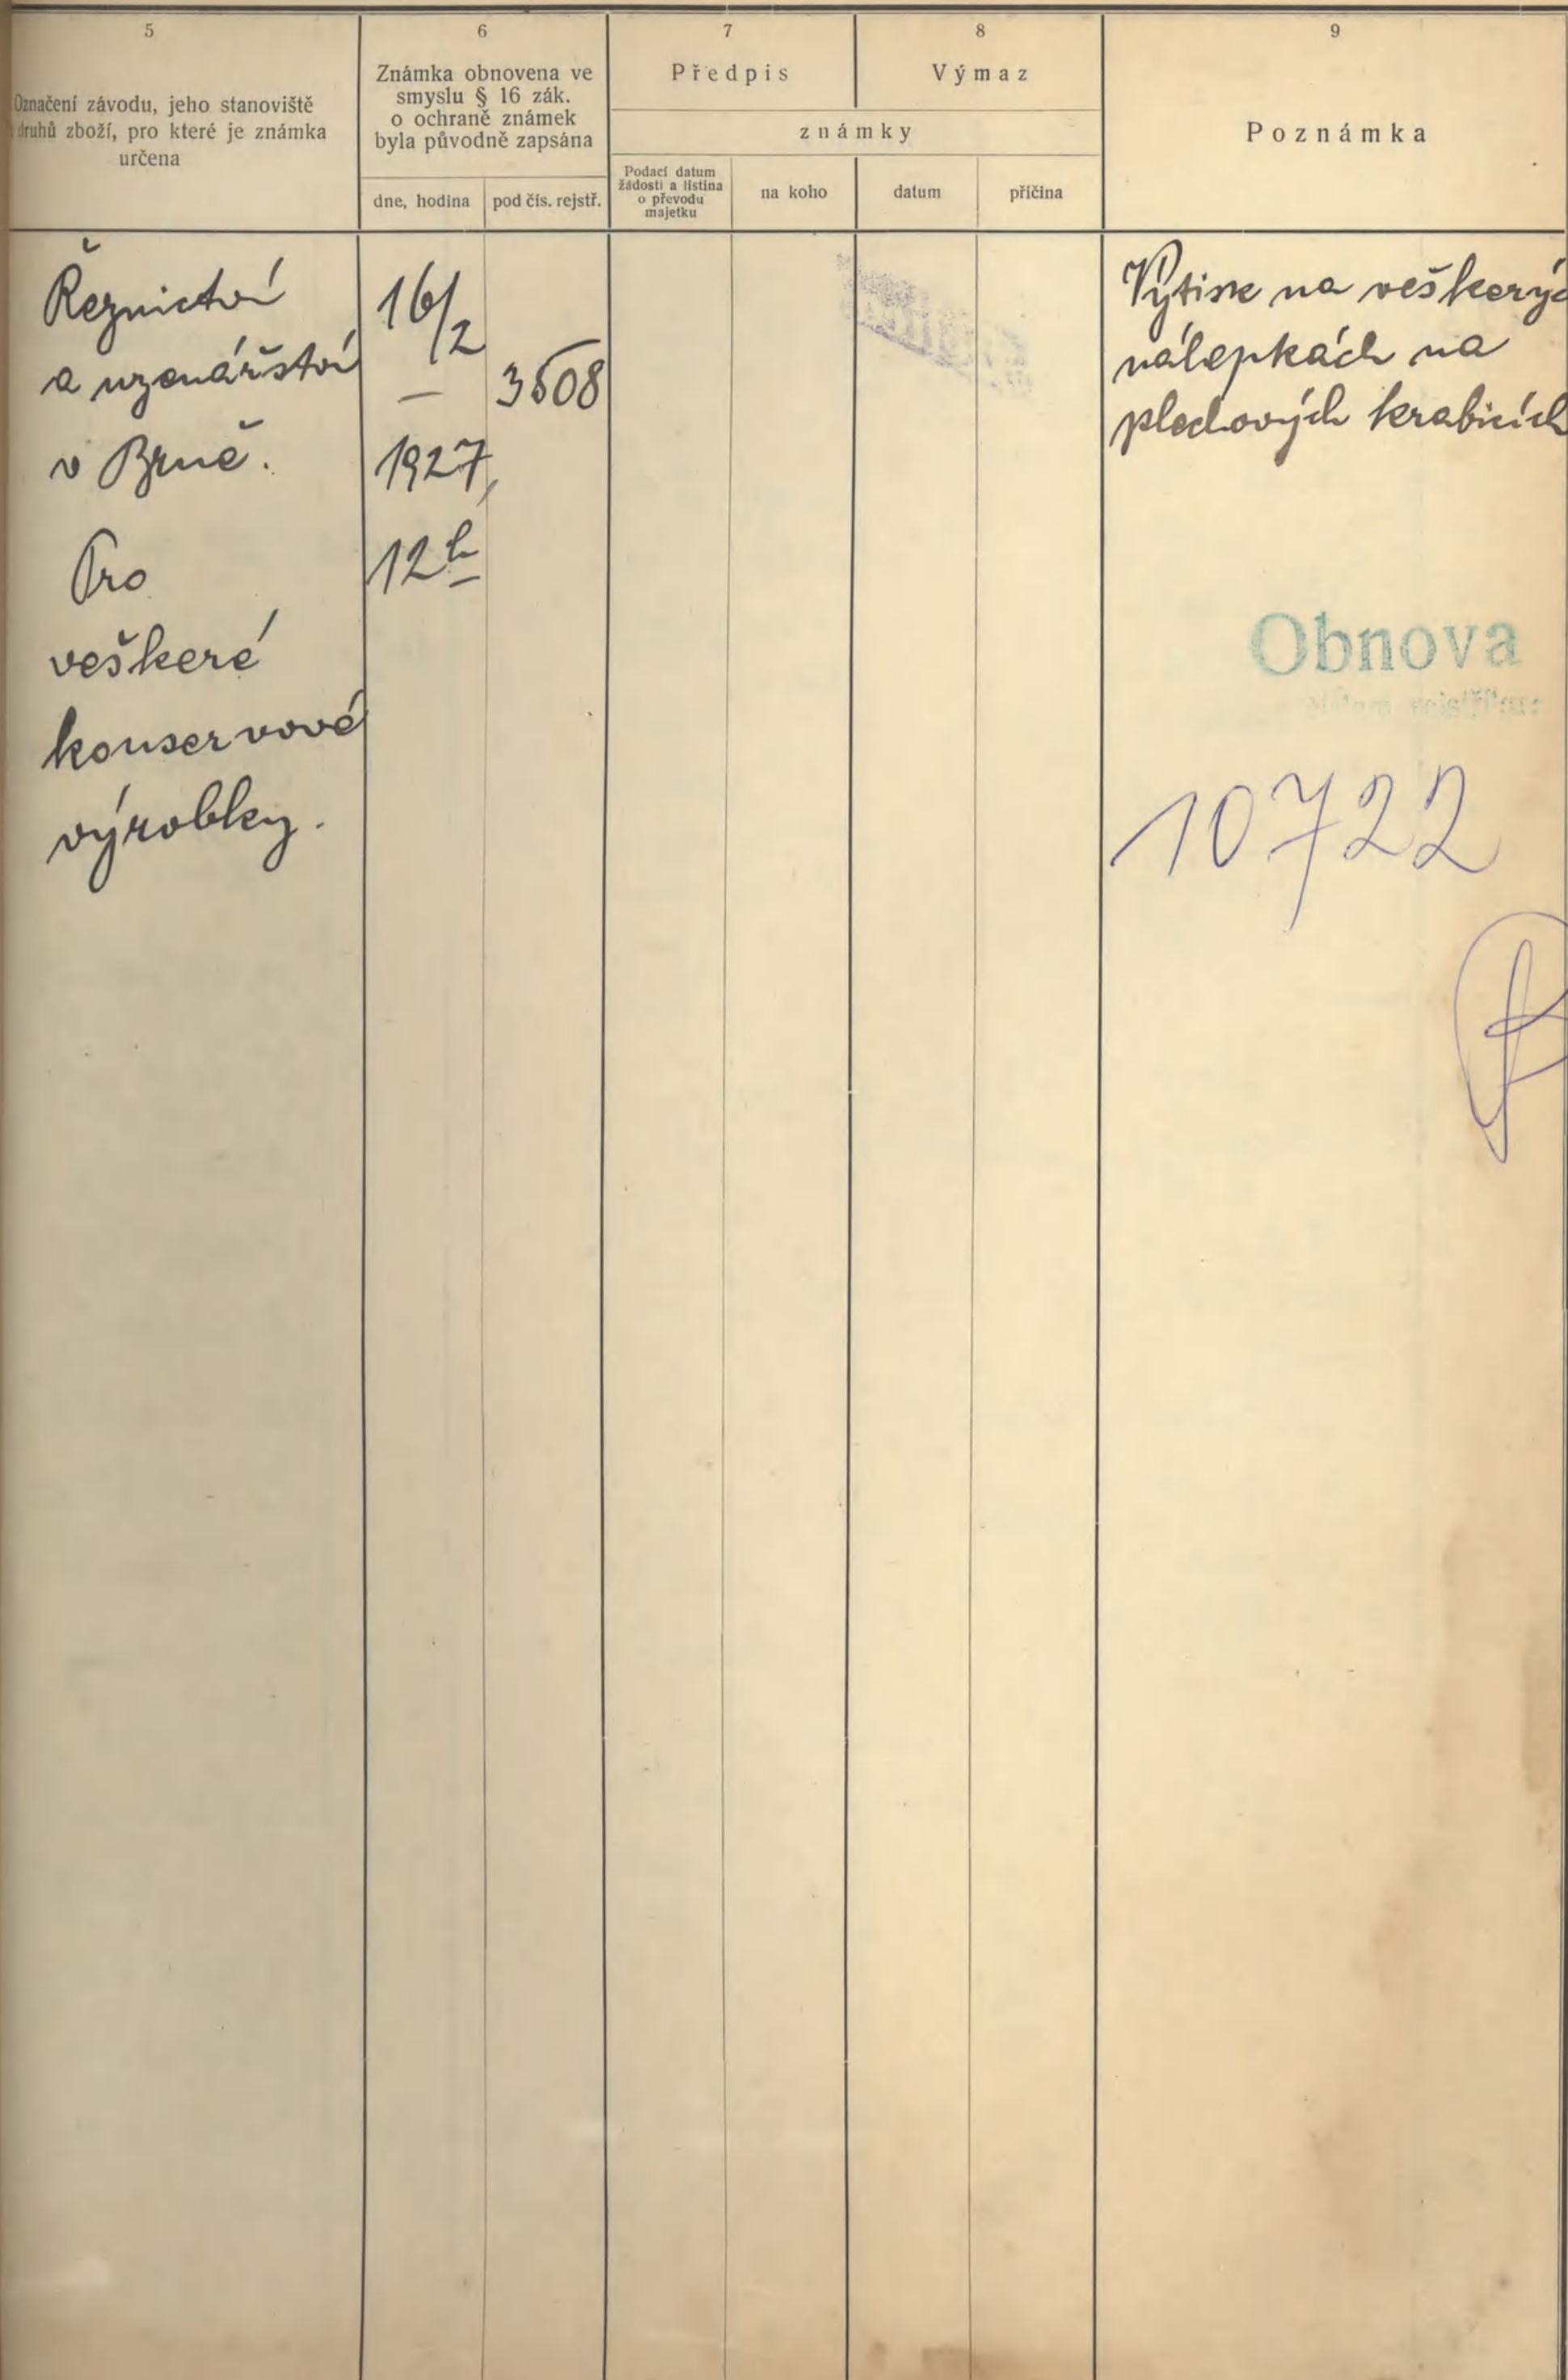 5
Označení závodu, jeho stanoviště
druhů zboží, pro které je známka
určena
6
Známka obnovena ve
smyslu § 16 zák.
o ochraně známek
byla původně zapsána
dne, hodina
pod čís. rejstř.
7
Předpis
8
Výmaz
známky
Podací datum
žádosti a listina
o převodu
majetku
na koho
datum
příčina
9
Poznámka
Řeznictví
a uzenářství
v Brně.
Pro
veškeré
konservové
výrobky.
16/2
—
1927,
12h
3508
Výtisk na veškerýc
nálepkách na
plechových krabicích
Obnova
10722